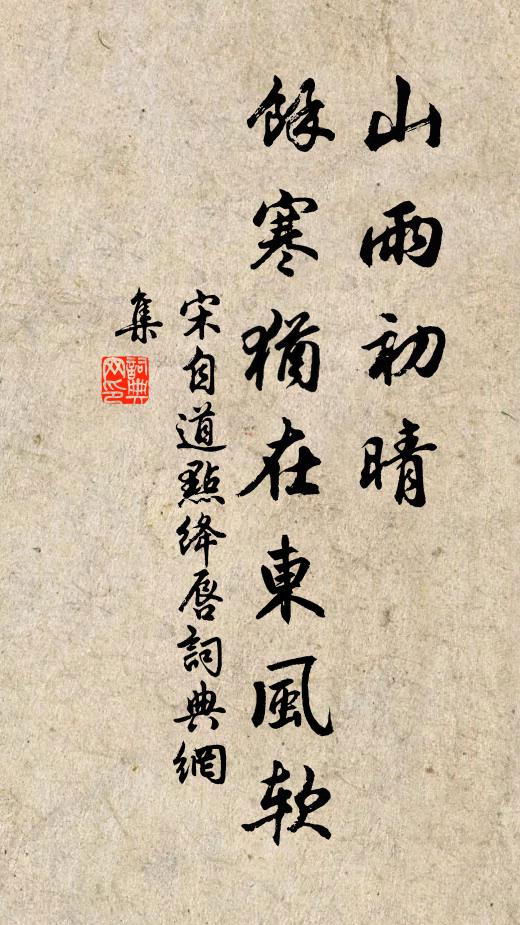 山雨初晴
餘寒猶在東風软
宋自道點绛唇詞典網
集
詞典
网印